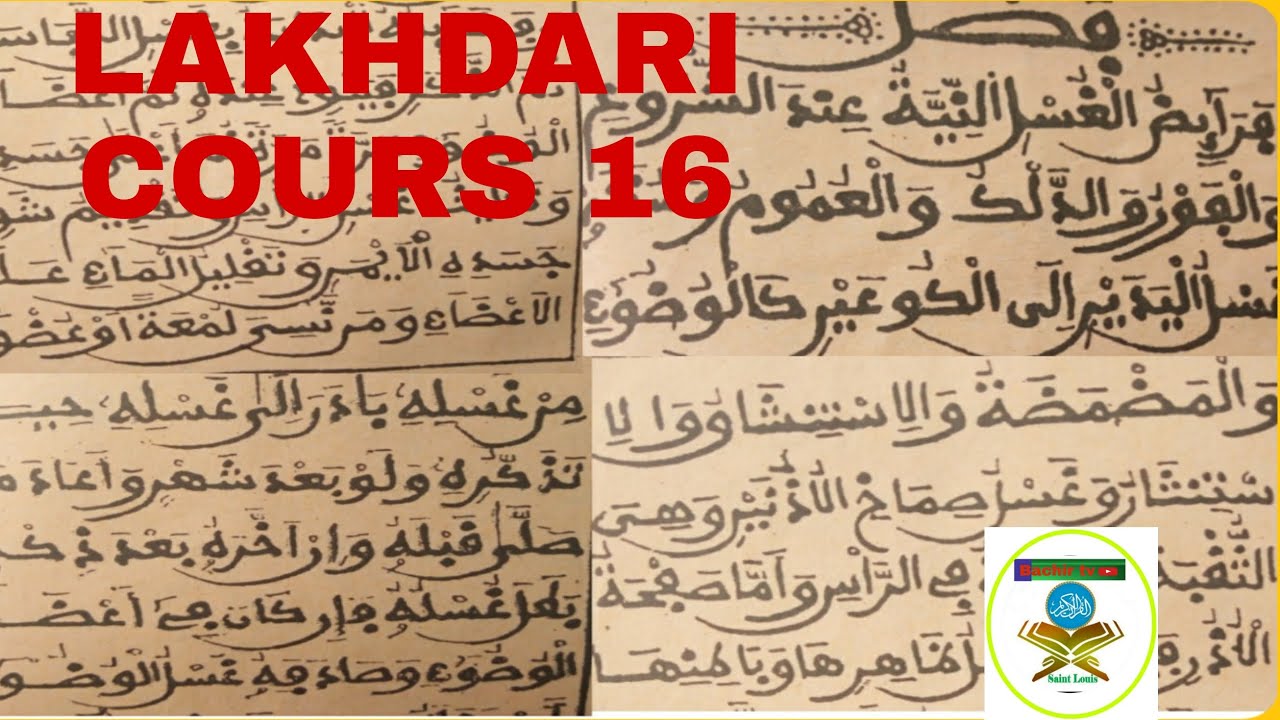 LAKHDARI
COURS 16
فصل
فرائض الغسل النية عند الشروع
والفور والدلك والعموم
غسل اليدين إلى الكوعين كالوضوء
والمضمضة والاستنشاق والا
ستنثار وغسل صماخ الأذنين وهي
الثقبة في الرأس وأما صفحة
ظاهرها وباطنها
بغسل
ثم أعضا
جسده
جسده الأيمن وتقليل الماء
الأعضاء ومن نسي لمعة أو عضو
من غسله بادر إلى غسله حين
تذكره ولو بعد شهر وأعاد
صلى قبله وإن أخره بعد ذكر
بطل غسله فإن كان في أعضا
الوضوء وصادفه غسل الوضو
Bachir tv
القرآن الكريم
Saint Louis